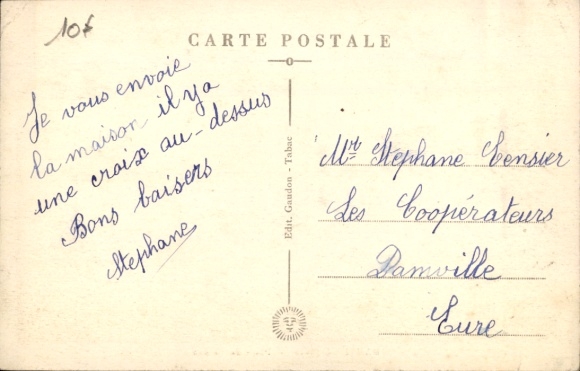 10f
CARTE POSTALE
Je vous envoie
la maison il y a
une croix au-dessus
Bons baisers
Stephane
Edit. Gaudon - Tabac
Stephane Tensier
Les Coopérateurs
Damville
Eure